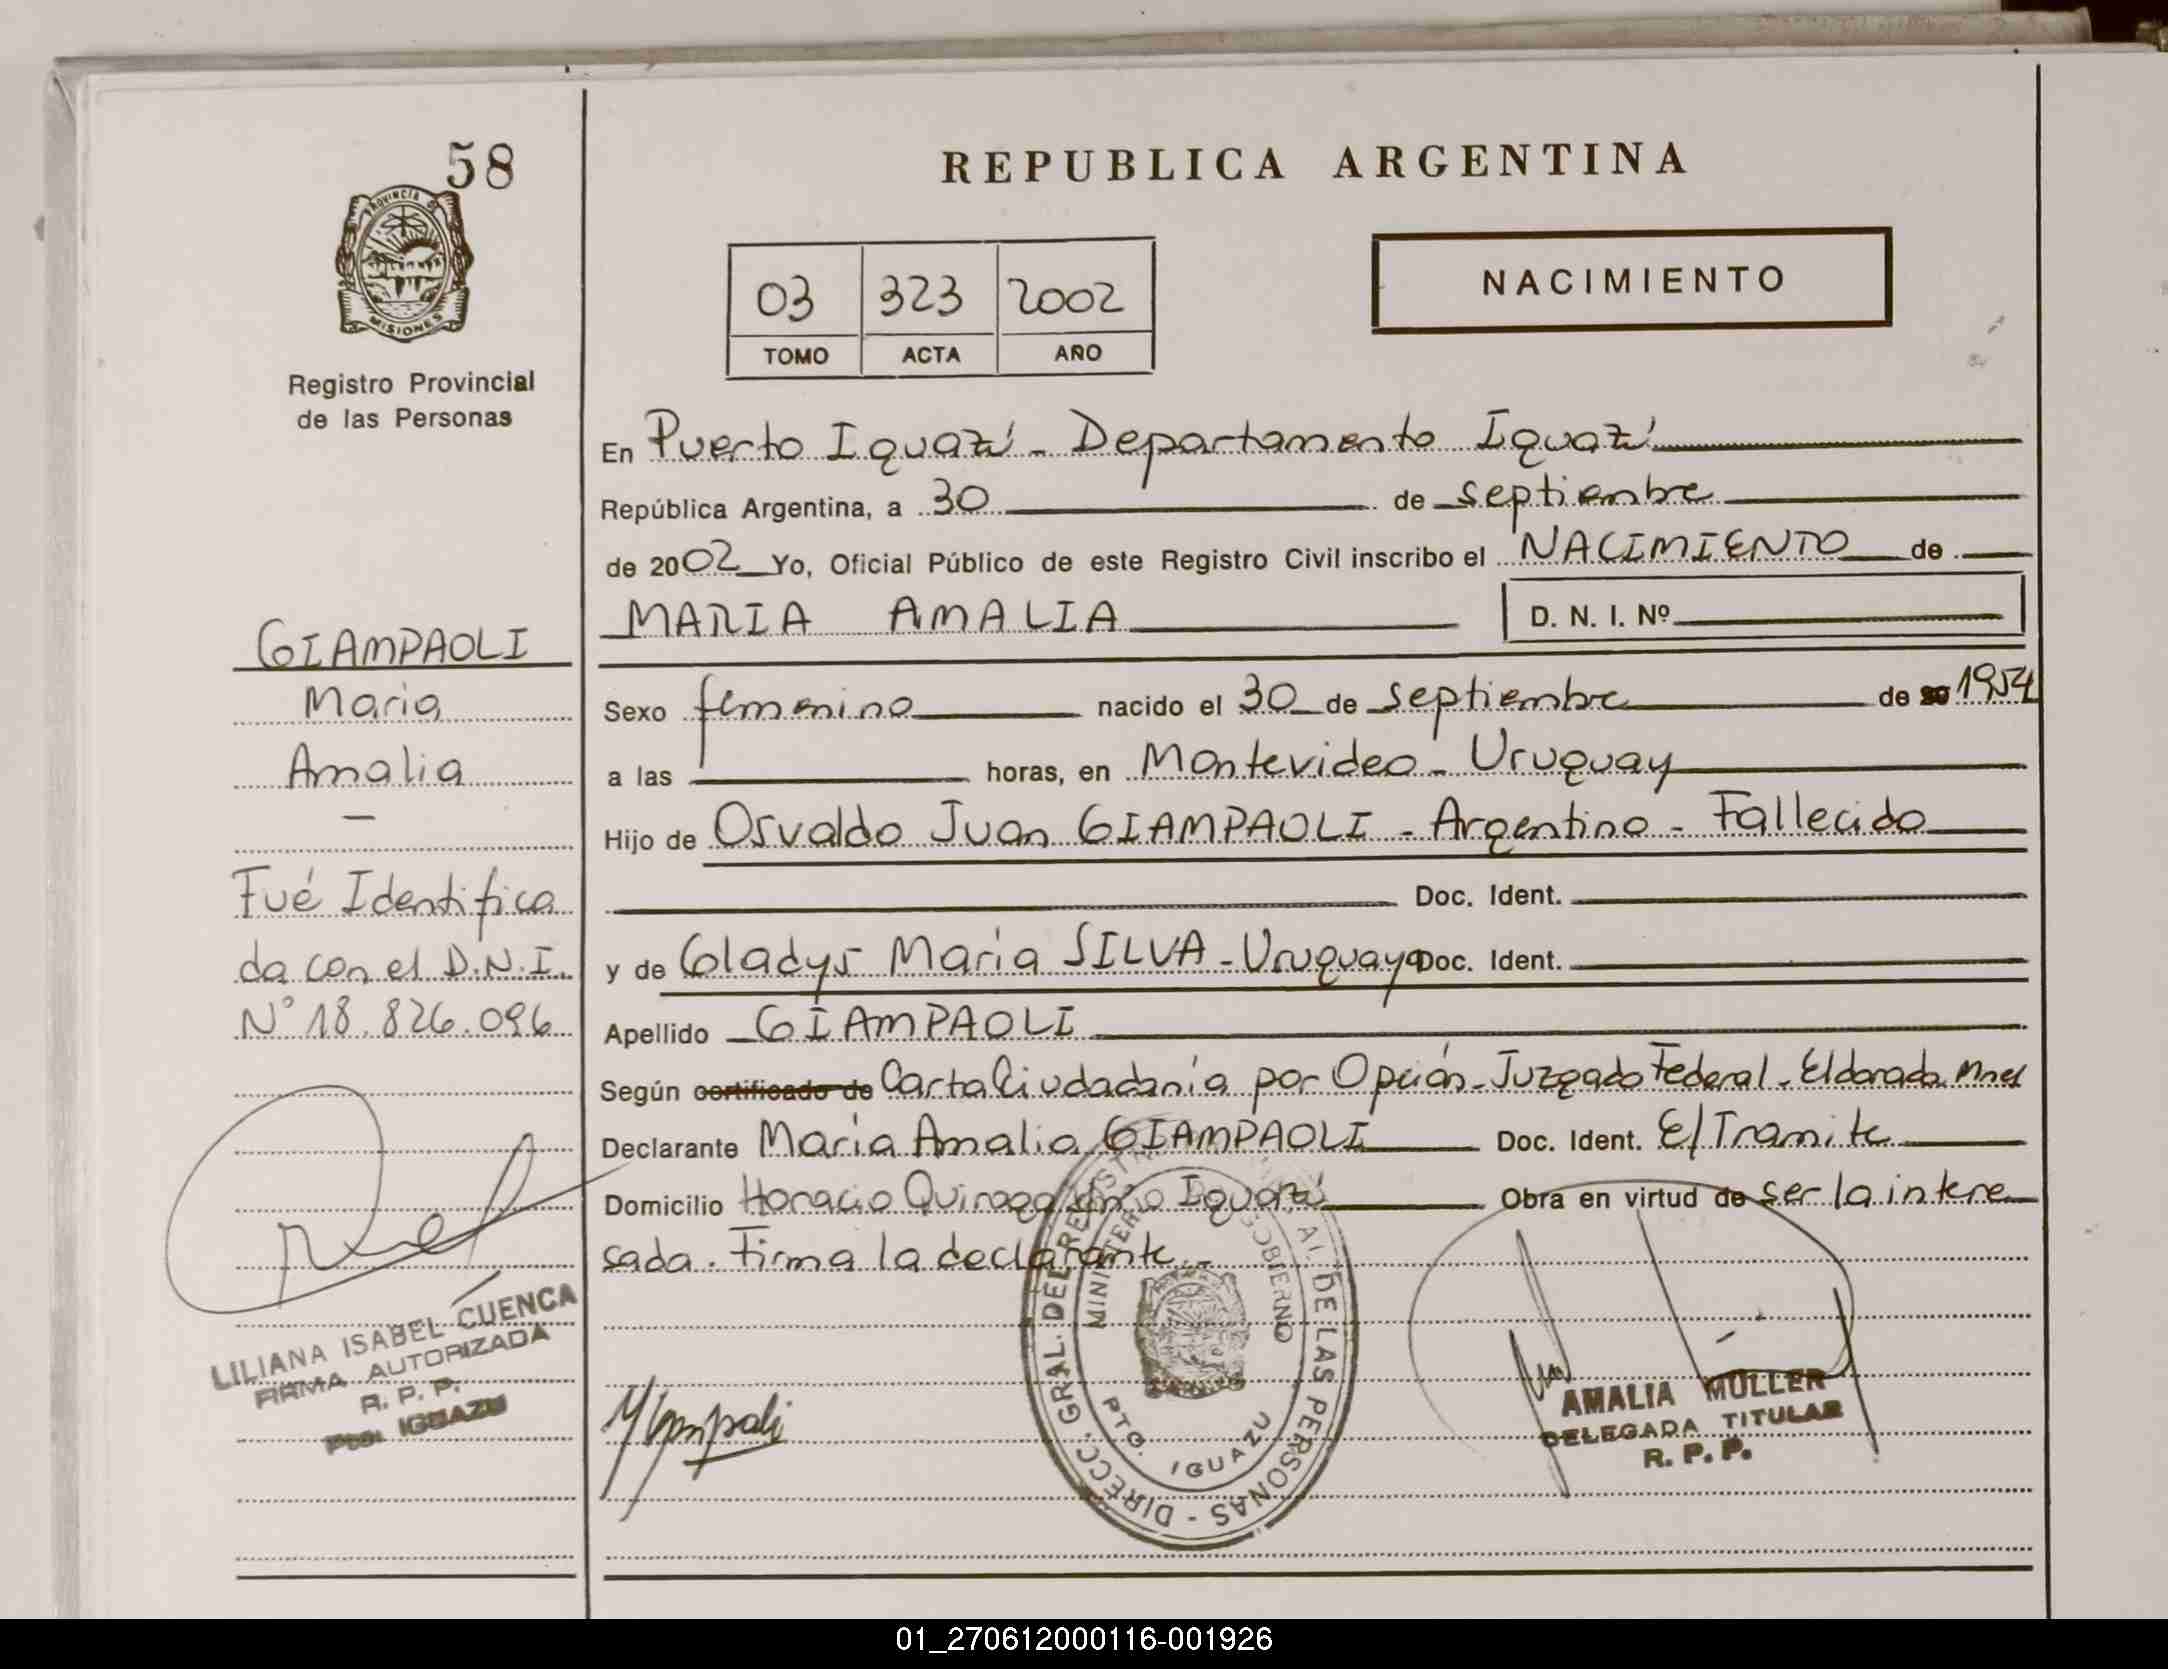 58
PROVINCIA DE
MISIONES
Registro Provincial
de las Personas
GIAMPAOLI
Maria
Amalia
—
Fué Identifica
da con el D.N.I.
N° 18.826.096
LILIANA ISABEL CUENCA
FIRMA AUTORIZADA
R. P. P.
Pto. IGUAZU
REPUBLICA ARGENTINA
03 323 2002
TOMO ACTA AÑO
NACIMIENTO
En Puerto Iguazú - Departamento Iguazú
República Argentina, a 30 de septiembre
de 2002 Yo, Oficial Público de este Registro Civil inscribo el NACIMIENTO de
MARIA AMALIA D. N. I. Nº
Sexo femenino nacido el 30 de septiembre de 1954
a las horas, en Montevideo - Uruguay
Hijo de Osvaldo Juan GIAMPAOLI - Argentino - Fallecido
Doc. Ident.
y de Gladys Maria SILVA - Uruguaya Doc. Ident.
Apellido GIAMPAOLI
Según certificado de Carta Ciudadanía por Opción - Juzgado Federal - Eldorado Mnes
Declarante Maria Amalia GIAMPAOLI Doc. Ident. E/Tramite
Domicilio Horacio Quiroga Iguazú Obra en virtud de ser la intere
sada. Firma la declarante.-
DIRECC. GRAL. DEL REGISTRO AL DE LAS PERSONAS
MINISTERIO DE GOBIERNO
PTO. IGUAZU
AMALIA MULLER
DELEGADA TITULAR
R. P. P.
01_270612000116-001926